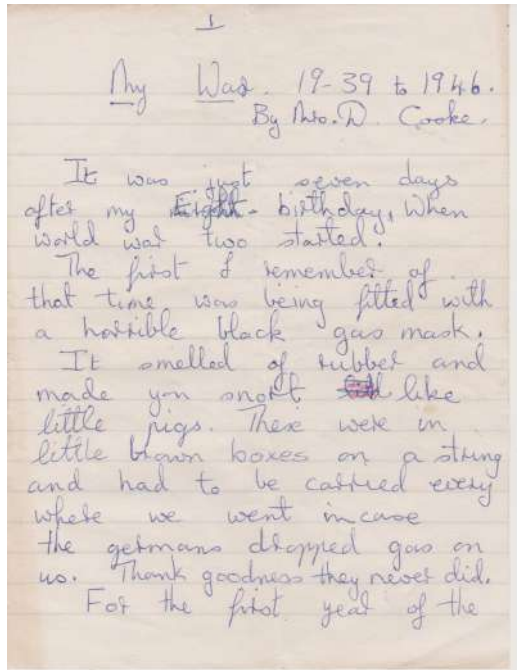 1
My War. 19-39 to 1946.
By Mrs. D. Cooke.
It was just seven days
after my Eight birthday, when
world war two started.
The first I remember of
that time was being fitted with
a horrible black gas mask.
It smelled of rubber and
made you snort like
little pigs. There were in
little brown boxes on a string
and had to be carried every
where we went incase
the germans dropped gas on
us. Thank goodness they never did.
For the first year of the